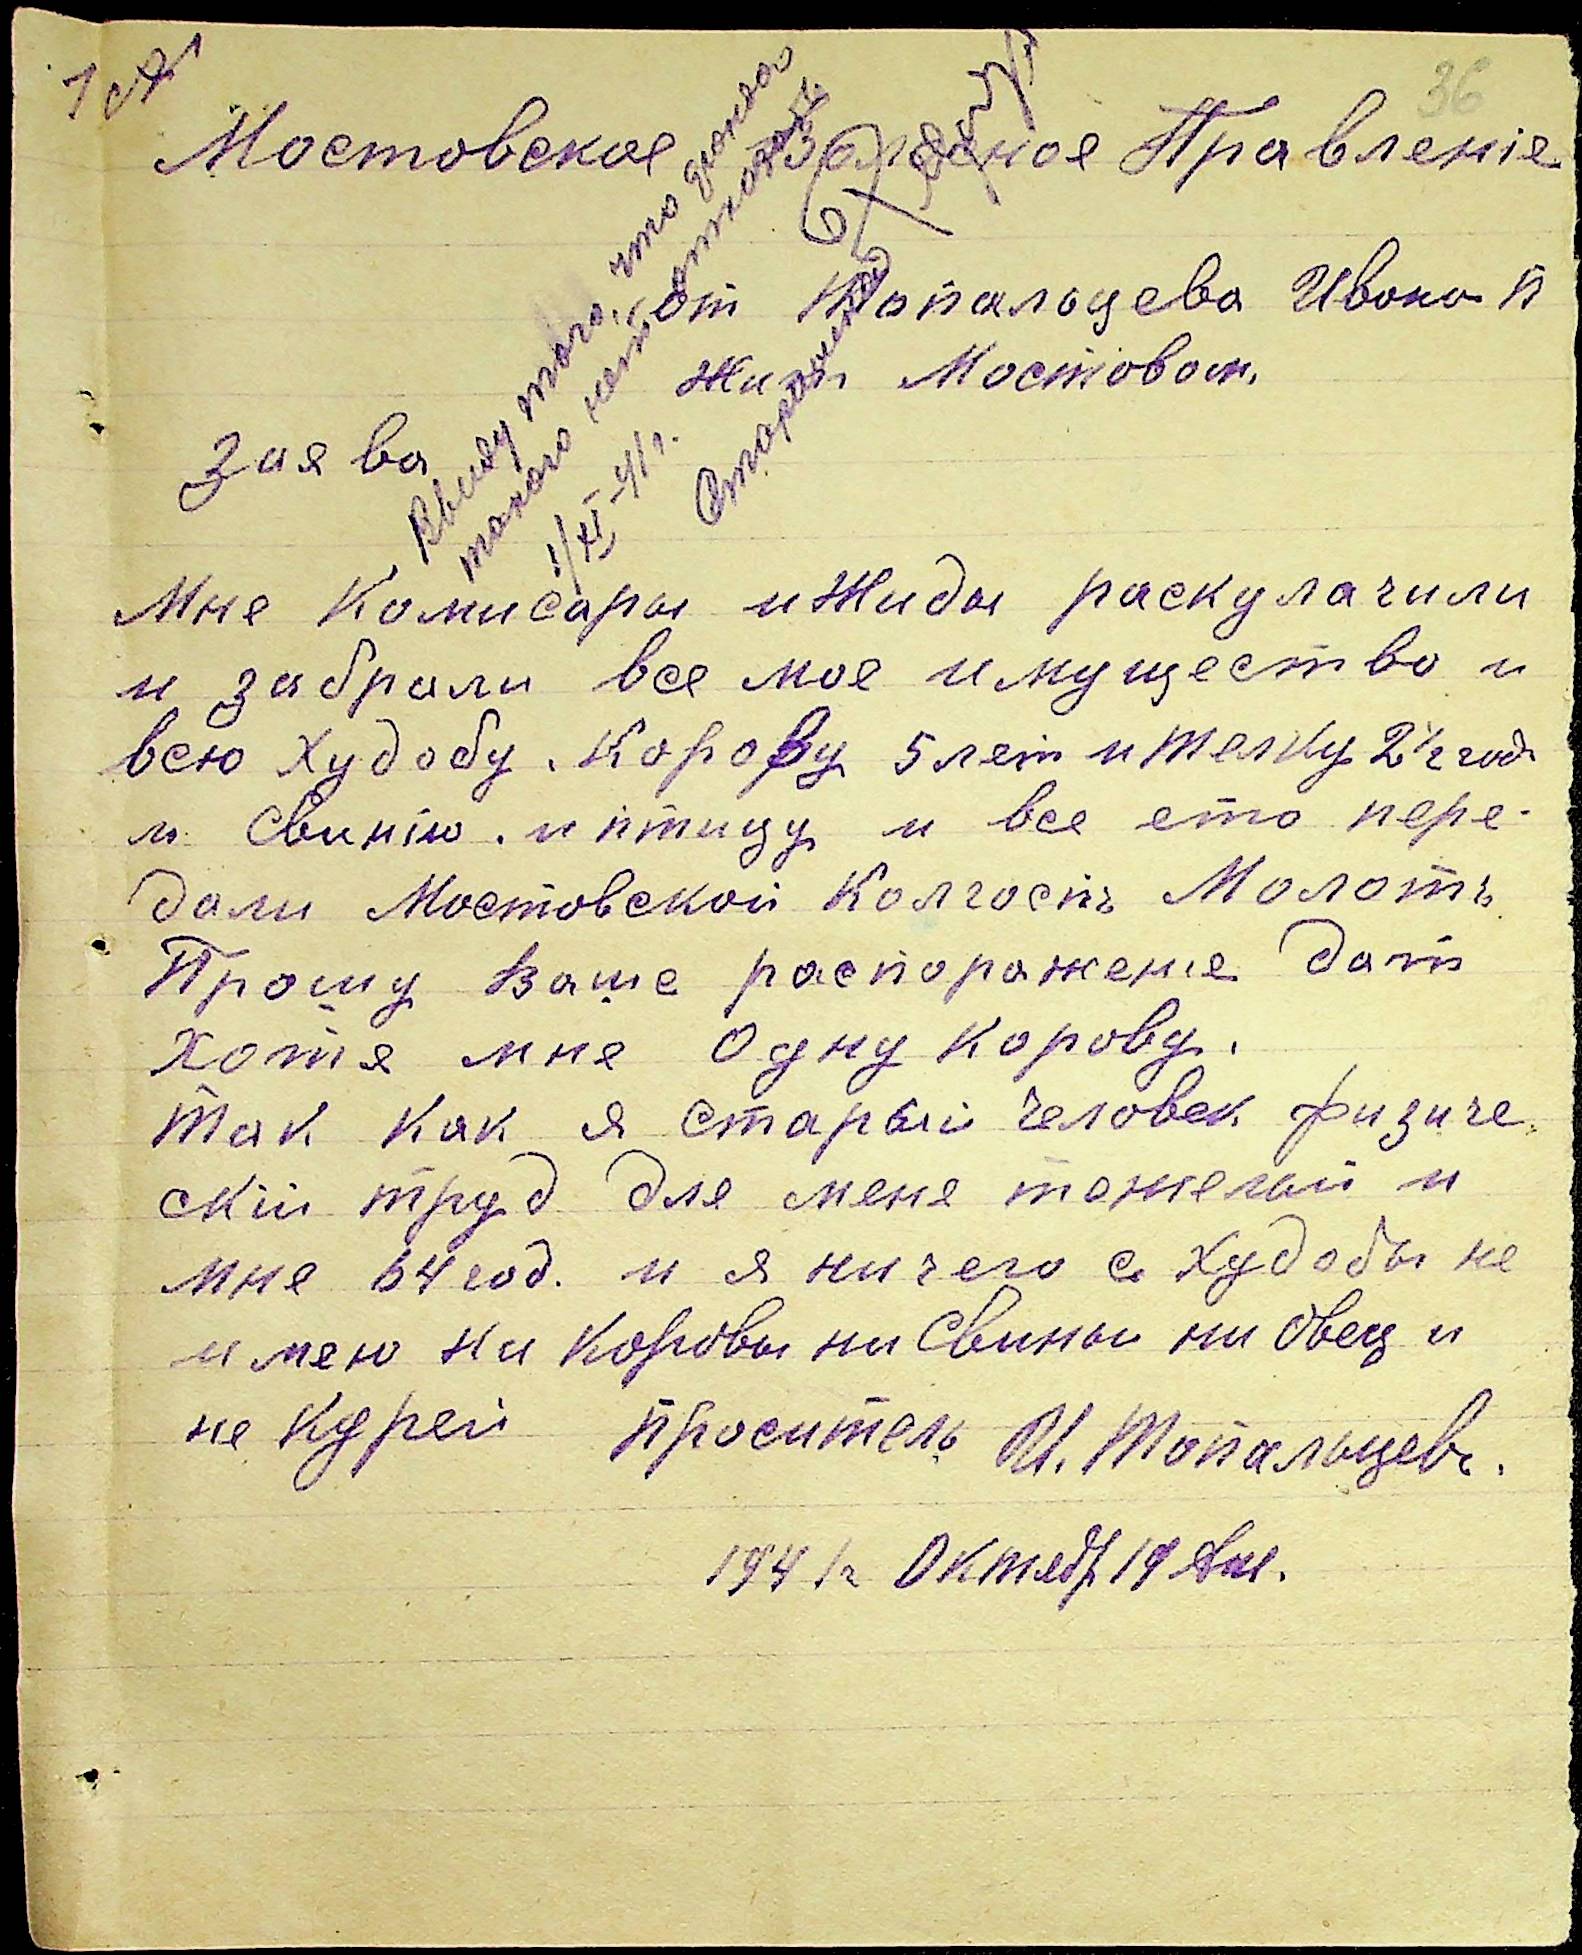 36
Мостовское Волосное Правленіе
от Топальцева Ивана П
Жит Мостовом.
Заява
Ввиду того, что фонда
такого нет отказать
1/XI-41 г.
Старшина
Мне Комисары и Жиды раскулачили
и забрали все мое имущество и
всю худобу. Корову 5 лет и телку 2½ год
и Свинію. и птицу и все ето пере-
дали Мостовской Колгоспъ Молотъ
Прошу ваше распоражение дат
Хотя мне Одну корову.
Так Как я старый человек физиче-
скій труд для меня тожелый и
мне 64 год. и я ничего с худобы не
имею ни Коровы ни Свиньи ни Овец и
не Курей Проситель И. Топальцевъ.
1941 г Октябр 19 дня.